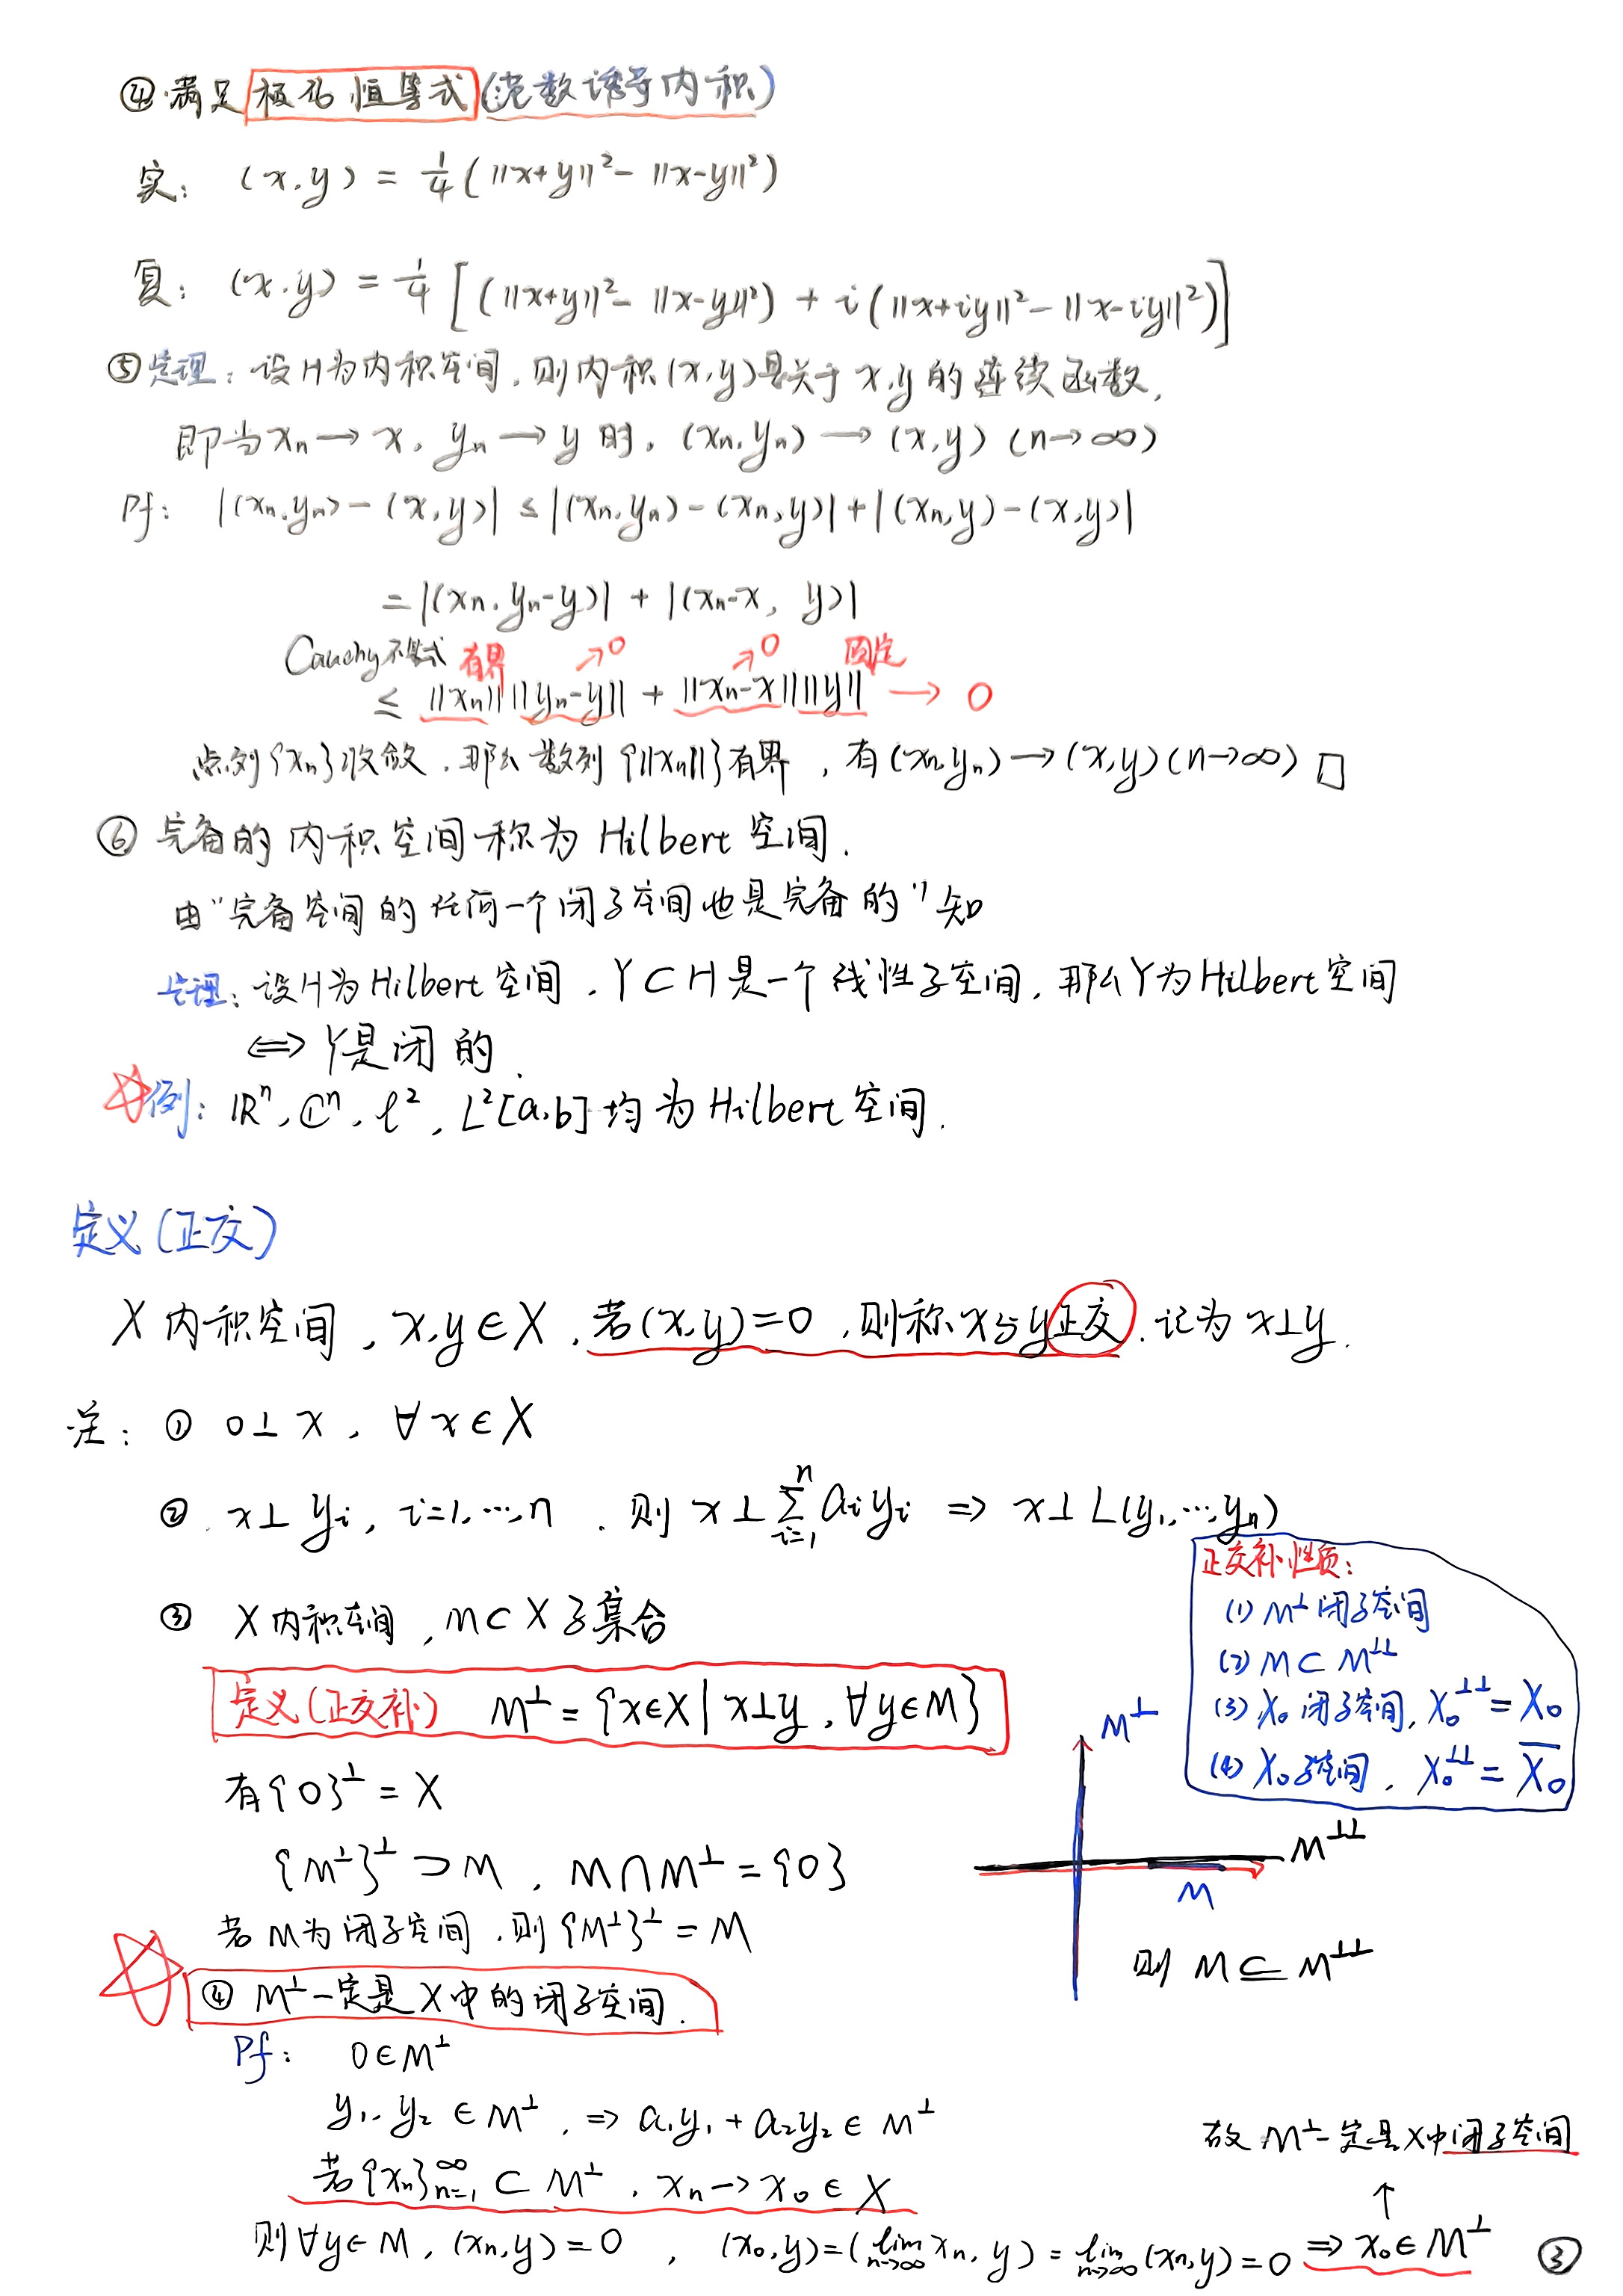 ④ 满足 极化恒等式 (范数诱导内积)
实: (x,y) = 1/4 (||x+y||² - ||x-y||²)
复: (x,y) = 1/4 [(||x+y||² - ||x-y||²) + i(||x+iy||² - ||x-iy||²)]
⑤ 定理: 设H为内积空间, 则内积(x,y)是关于x,y的连续函数,
即当xₙ → x, yₙ → y 时, (xₙ,yₙ) → (x,y) (n→∞)
Pf: |(xₙ,yₙ) - (x,y)| ≤ |(xₙ,yₙ) - (xₙ,y)| + |(xₙ,y) - (x,y)|
= |(xₙ,yₙ-y)| + |(xₙ-x, y)|
Cauchy不等式 有界 →0 →0 固定
≤ ||xₙ|| ||yₙ-y|| + ||xₙ-x|| ||y|| → 0
点列{xₙ}收敛, 那么数列{||xₙ||}有界, 有(xₙ,yₙ) → (x,y) (n→∞) □
⑥ 完备的内积空间称为 Hilbert 空间.
由"完备空间的任何一个闭子空间也是完备的"知
定理: 设H为Hilbert空间, Y⊂H是一个线性子空间, 那么Y为Hilbert空间
⇔ Y是闭的.
☆例: ℝⁿ, ℂⁿ, ℓ², L²[a,b] 均为Hilbert空间.
定义(正交)
X 内积空间, x,y∈X, 若(x,y)=0, 则称x与y正交, 记为 x⊥y.
注: ① 0⊥x, ∀x∈X
② x⊥yᵢ, i=1,…,n. 则 x⊥∑ⁿᵢ₌₁ aᵢyᵢ ⇒ x⊥L(y₁,…,yₙ)
正交补性质:
(1) M^⊥ 闭子空间
(2) M⊂M^⊥⊥
(3) X₀ 闭子空间, X₀^⊥⊥ = X₀
(4) X₀ 子空间, X₀^⊥⊥ = X̅₀
③ X 内积空间, M⊂X 子集合
定义(正交补) M^⊥ = {x∈X | x⊥y, ∀y∈M}
有{0}^⊥ = X
{M^⊥}^⊥ ⊃ M, M∩M^⊥ = {0}
若 M 为闭子空间, 则{M^⊥}^⊥ = M
M^⊥
M^⊥⊥
M
则 M ⊆ M^⊥⊥
☆ ④ M^⊥ 一定是 X 中的闭子空间.
Pf: 0∈M^⊥
y₁, y₂ ∈ M^⊥, ⇒ a₁y₁ + a₂y₂ ∈ M^⊥
若{xₙ}^∞ₙ₌₁ ⊂ M^⊥, xₙ → x₀ ∈ X
则∀y∈M, (xₙ,y) = 0, (x₀,y) = (lim n→∞ xₙ, y) = lim n→∞ (xₙ,y) = 0 ⇒ x₀∈M^⊥
↑
故 M^⊥一定是X中闭子空间
③